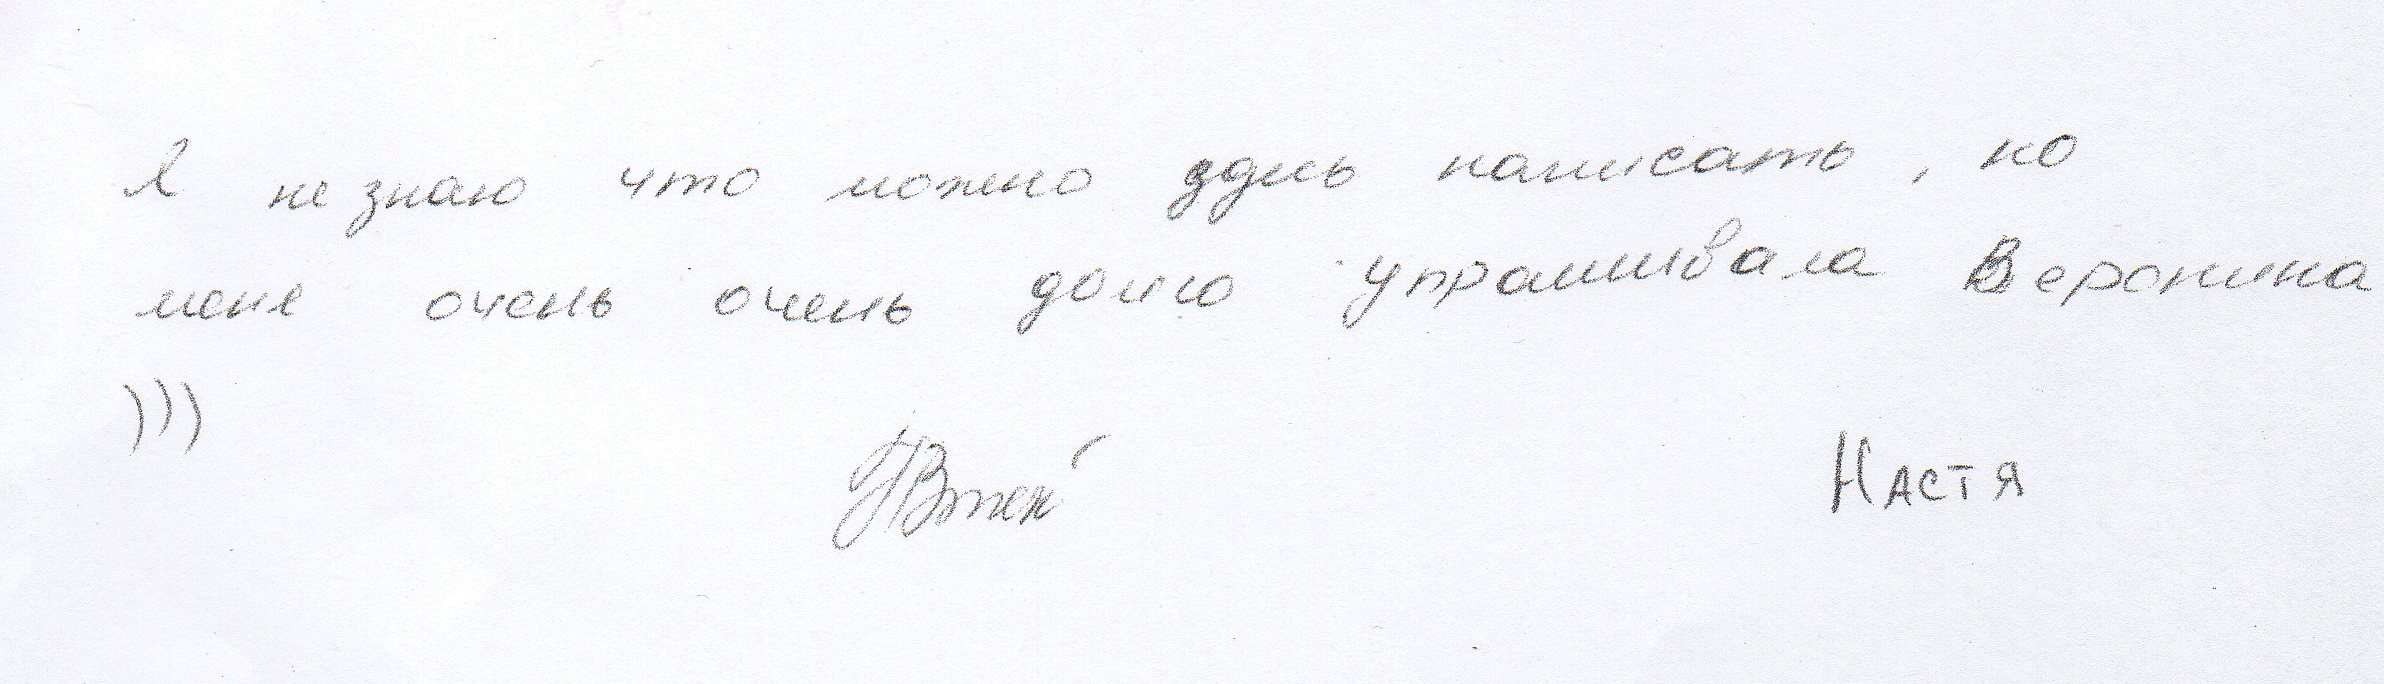 Я не знаю что можно здесь написать, но
меня очень очень долго упрашивала Вероника
)))
Настя